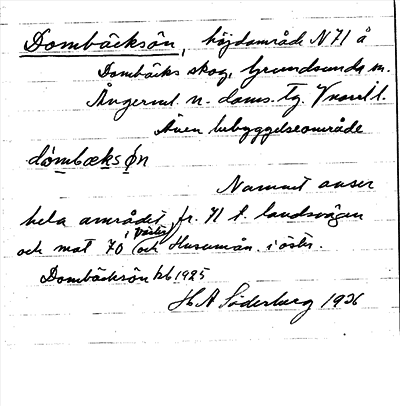 Dombäcksön, höjdområde N 71 å
Dombäcks skog, Grundsunda sn.
Ångerml. n. doms. tg.
Även bebyggelseområde
dombæksøn
Namnet avser
hela området fr. 71 t. landsvägen
och mot 70 i väster och Husumån i öster.
Dombäcksön kb 1925
H A Söderberg 1936